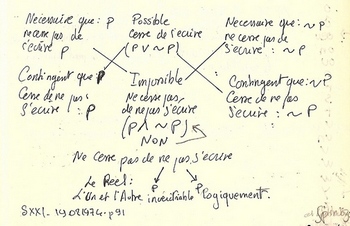 Necessaire que: p
ne cesse pas de
s'écrire p
Possible
Cesse de s'écrire
(p ∨ ~p)
Necessaire que: ~p
ne cesse pas de
s'écrire : ~p
Contingent que p
Cesse de ne pas
s'écrire : p
Impossible
Ne cesse pas
de ne pas s'écrire
(p ∧ ~p)
NON
Contingent que: ~p
Cesse de ne pas
s'écrire : ~p
Ne cesse pas de ne pas s'écrire
Le Réel: p p
L'Un et l'Autre inévitable logiquement.
SXXI. 19 02 1974. p91